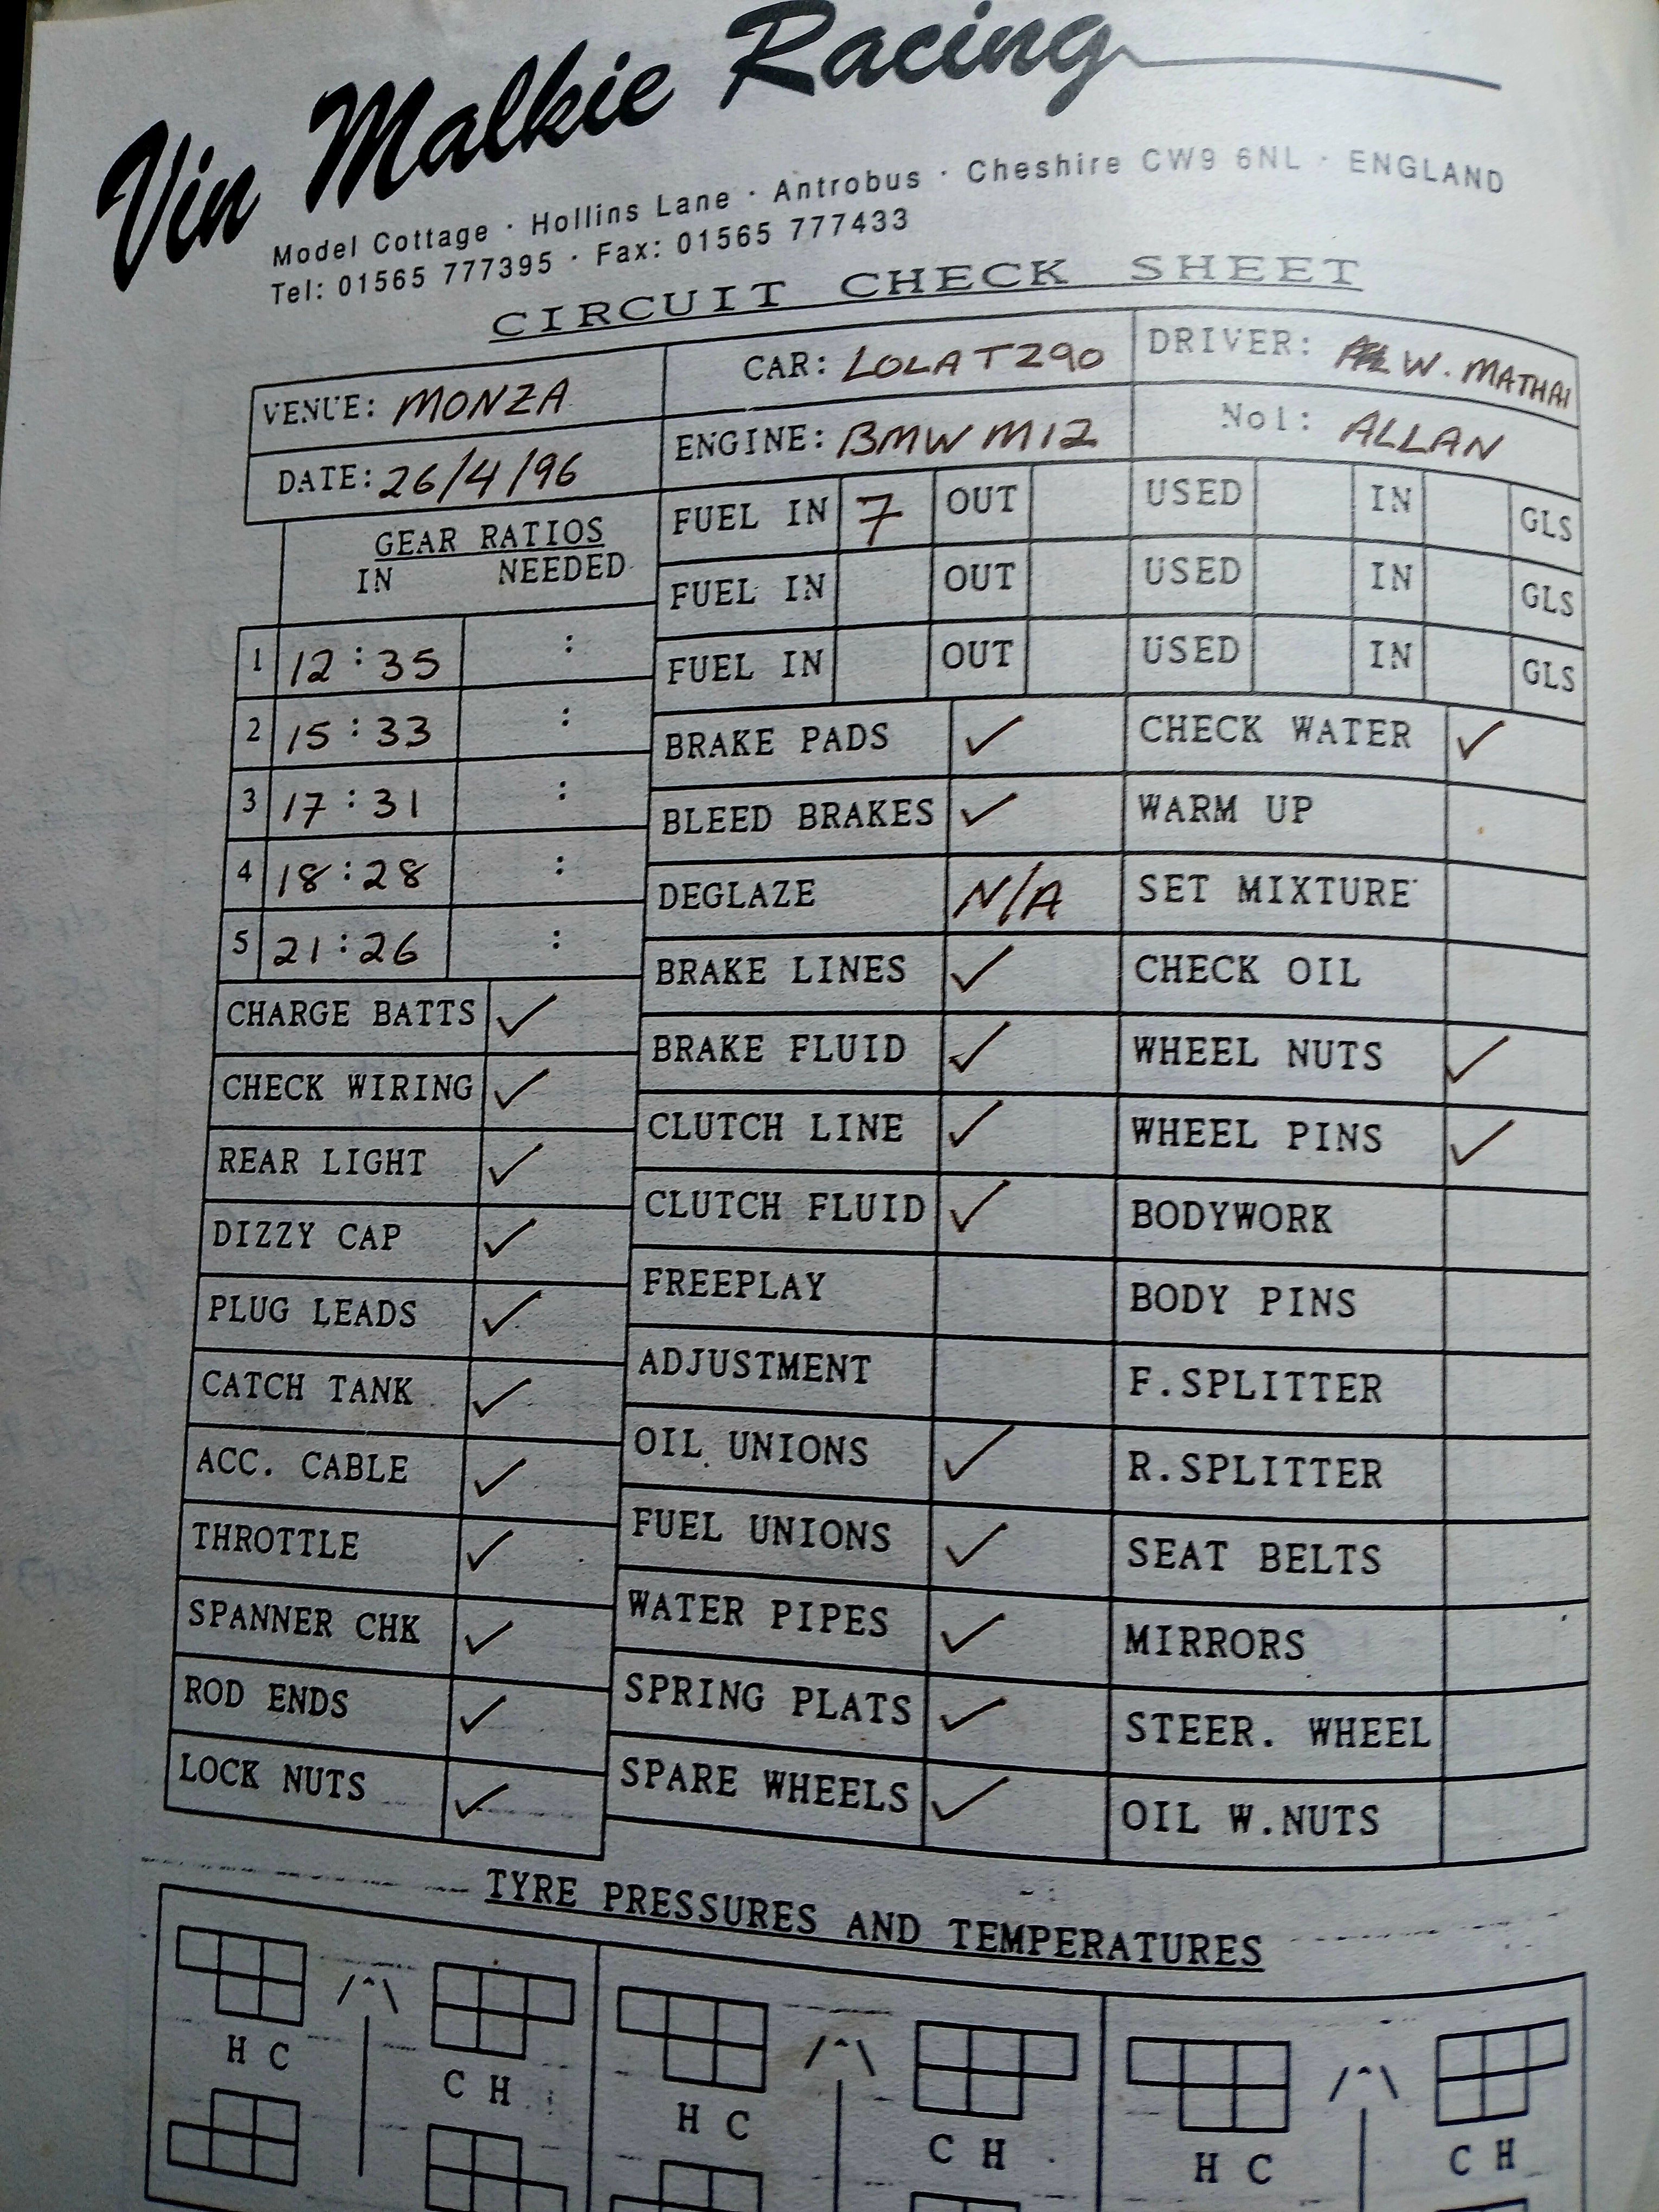 Vin Malkie Racing
Model Cottage · Hollins Lane · Antrobus · Cheshire CW9 6NL · ENGLAND
Tel: 01565 777395 · Fax: 01565 777433
CIRCUIT CHECK SHEET
VENUE: MONZA
CAR: LOLA T290
DRIVER: W. MATHAI
DATE: 26/4/96
ENGINE: BMW M12
No1: ALLAN
GEAR RATIOS
IN NEEDED
1 12:35 :
2 15:33 :
3 17:31 :
4 18:28 :
5 21:26 :
CHARGE BATTS ✓
CHECK WIRING ✓
REAR LIGHT ✓
DIZZY CAP ✓
PLUG LEADS ✓
CATCH TANK ✓
ACC. CABLE ✓
THROTTLE ✓
SPANNER CHK ✓
ROD ENDS ✓
LOCK NUTS ✓
FUEL IN 7 OUT USED IN GLS
FUEL IN OUT USED IN GLS
FUEL IN OUT USED IN GLS
BRAKE PADS ✓
BLEED BRAKES ✓
DEGLAZE N/A
BRAKE LINES ✓
BRAKE FLUID ✓
CLUTCH LINE ✓
CLUTCH FLUID ✓
FREEPLAY
ADJUSTMENT
OIL UNIONS ✓
FUEL UNIONS ✓
WATER PIPES ✓
SPRING PLATS ✓
SPARE WHEELS ✓
CHECK WATER ✓
WARM UP
SET MIXTURE
CHECK OIL
WHEEL NUTS ✓
WHEEL PINS ✓
BODYWORK
BODY PINS
F.SPLITTER
R.SPLITTER
SEAT BELTS
MIRRORS
STEER. WHEEL
OIL W.NUTS
TYRE PRESSURES AND TEMPERATURES
H C C H H C C H H C C H